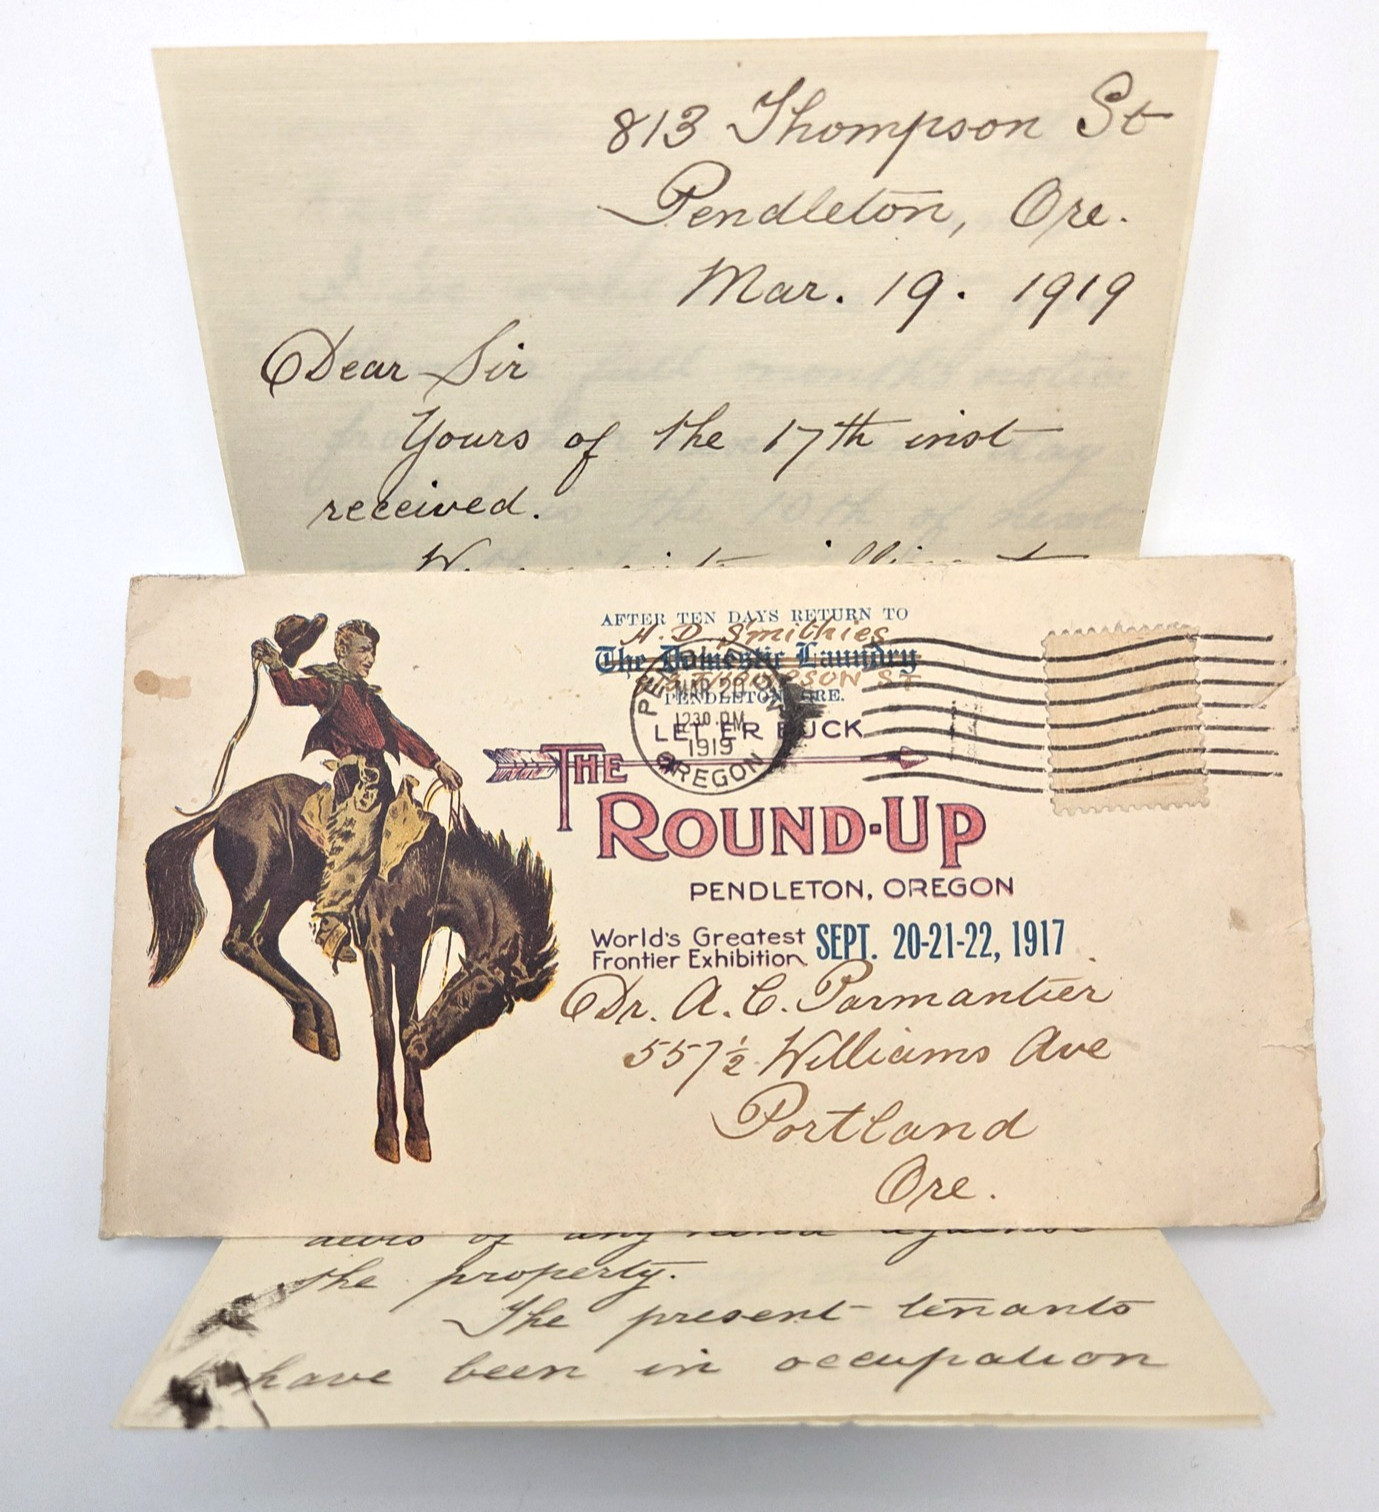 813 Thompson St
Pendleton, Ore.
Mar. 19. 1919
Dear Sir
Yours of the 17th inst
received.
AFTER TEN DAYS RETURN TO
H. D. Smithies
The Domestic Laundry
813 THOMPSON ST
PENDLETON, ORE.
MAR 20
1230 PM
1919
OREGON
LET ER BUCK
THE
ROUND-UP
PENDLETON, OREGON
World's Greatest
Frontier Exhibition
SEPT. 20-21-22, 1917
Dr. A. C. Parmantier
557½ Williams Ave
Portland
Ore.
of any kind against
the property.
The present tenants
have been in occupation